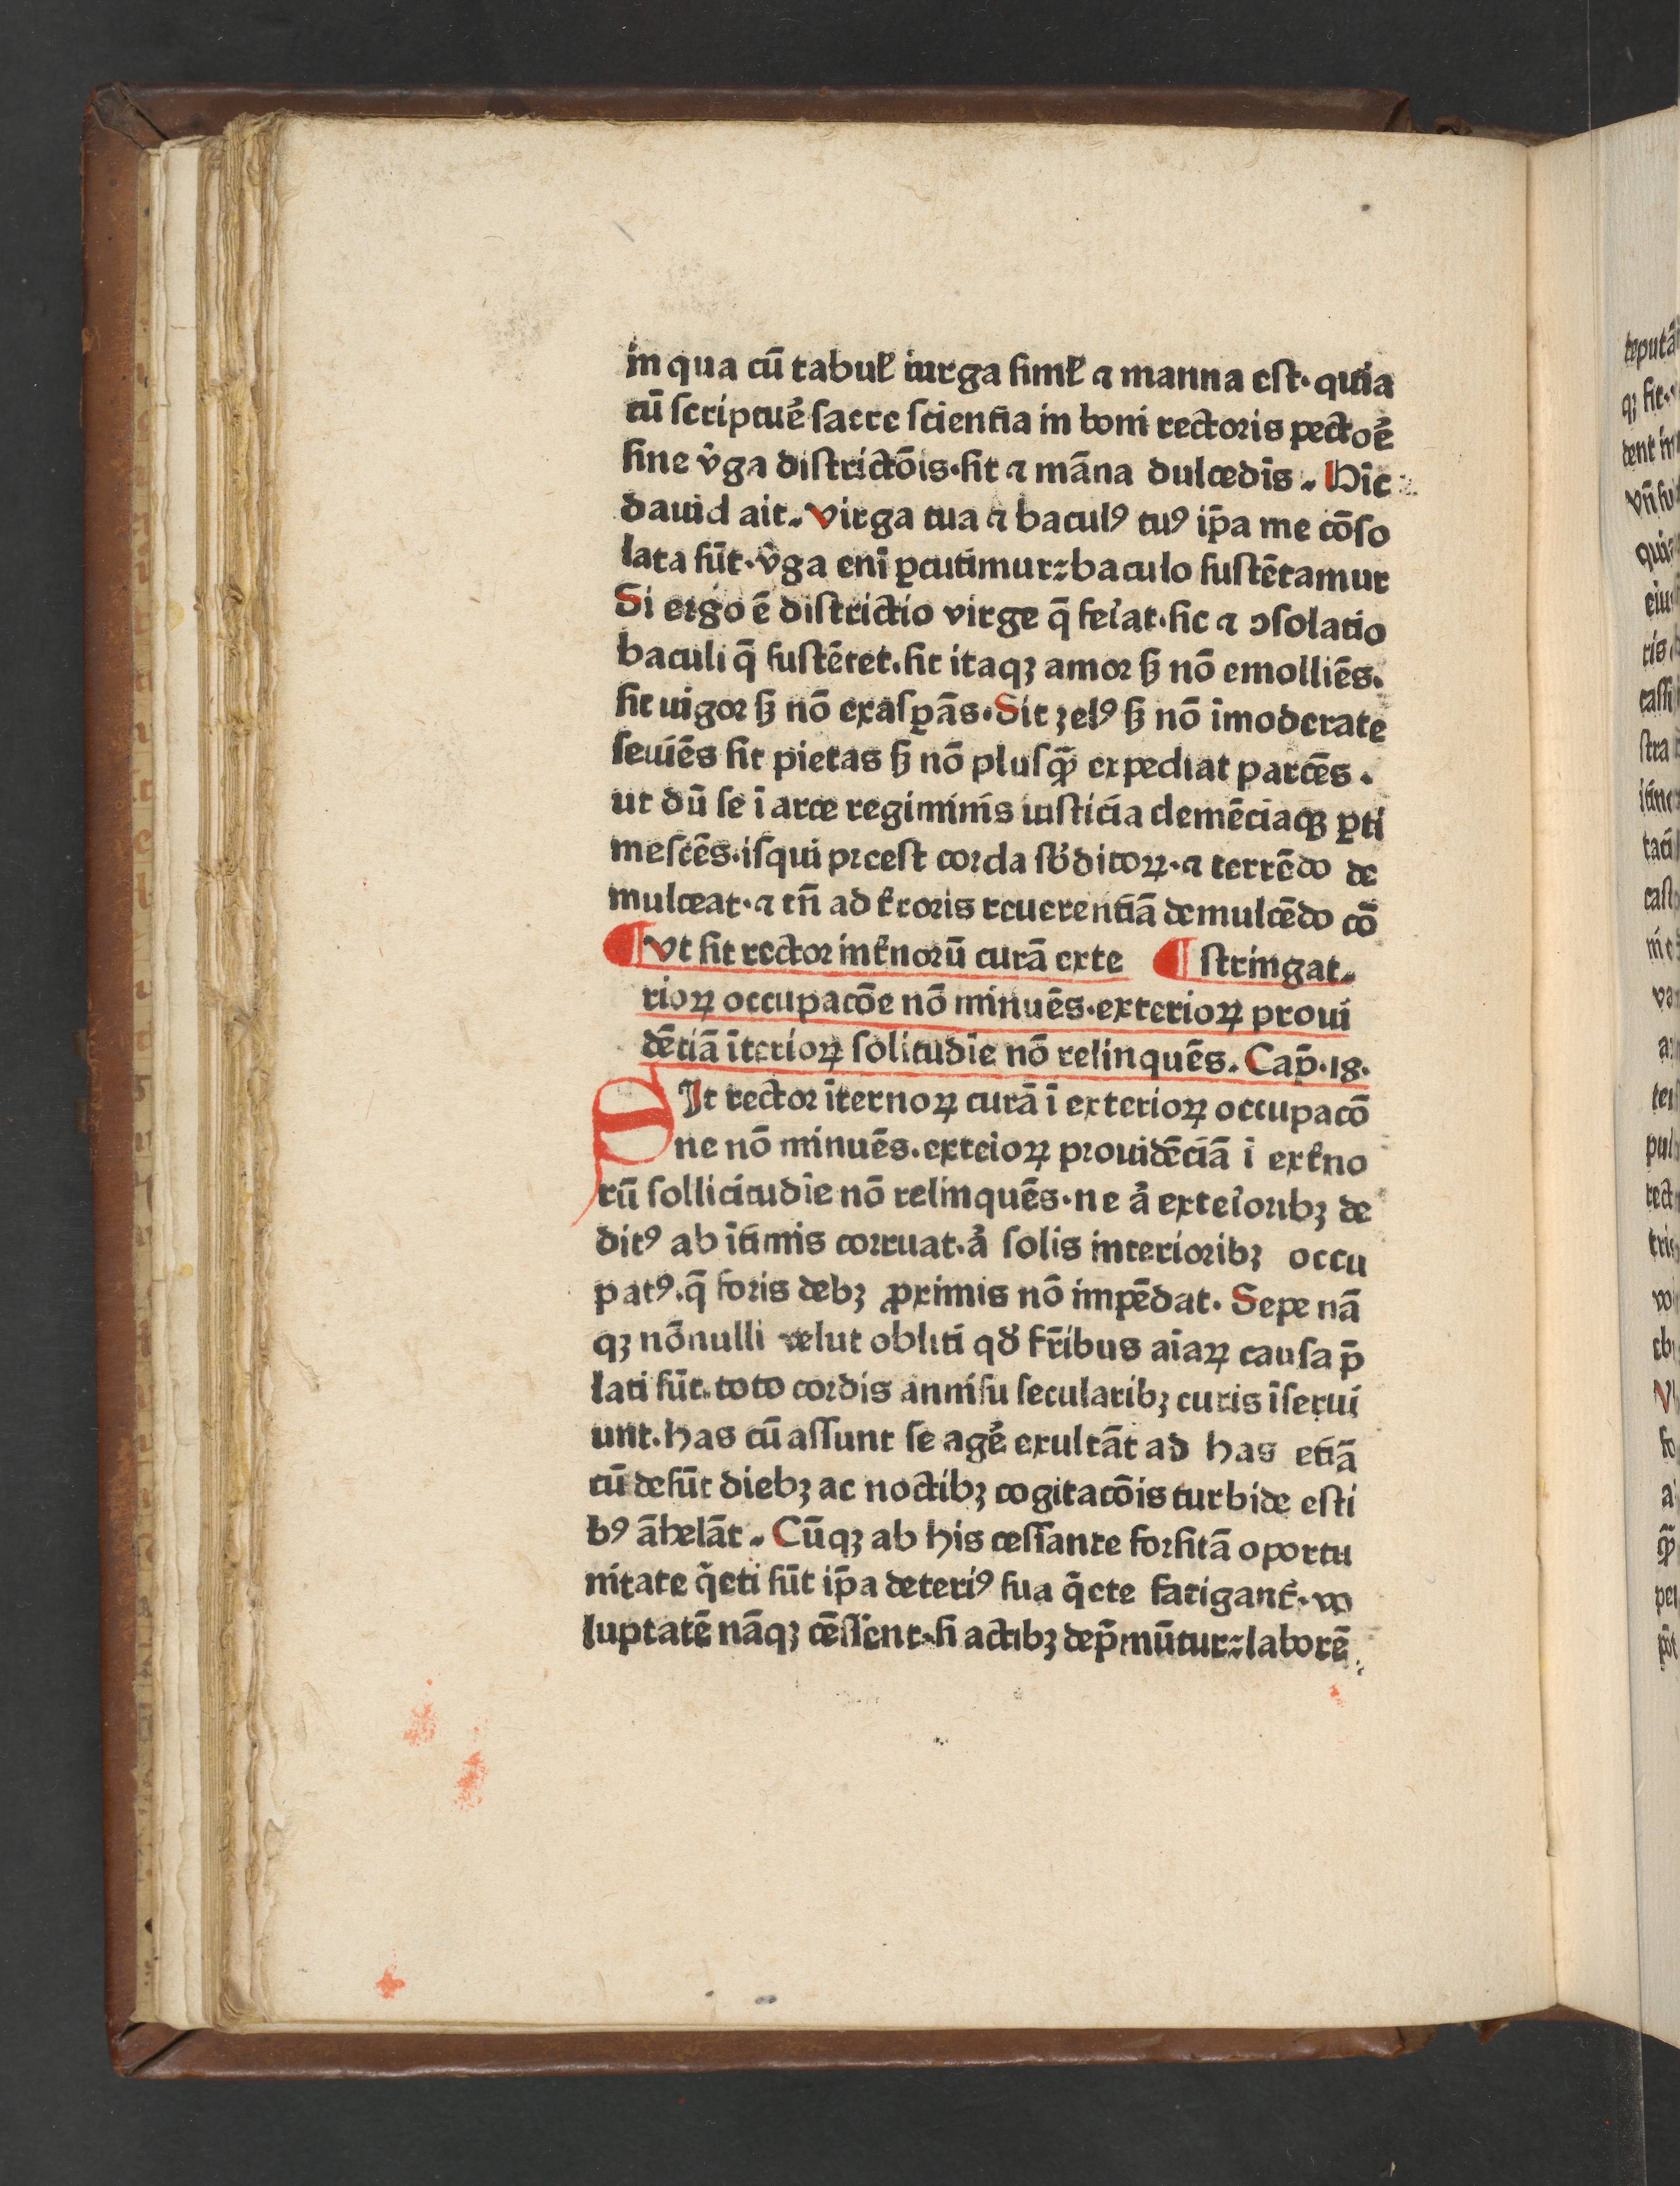 in qua cū tabuł iurga simł ⁊ manna est· quia
cū scriptue᷑ sacre scientia in boni rectoris pectoe᷑
sine v᷑ga districtōis·sit ⁊ māna dulcedīs. Hīc
dauid ait. Virga tua ⁊ baculꝰ tuꝰ ip̄a me cōso
lata sūt·v᷑ga enī ꝑcutimur⹀baculo sustētamur
Si ergo ē districtio virge q̄ feĩat·sic ⁊ ↄsolatio
baculi q̄ sustētet.sit itaqꝫ amor sꝫ nō emolliēs.
sit uigor sꝫ nō exasꝑās·Sit zelꝰ sꝫ nō īmoderate
seuiēs sit pietas sꝫ nō plusqꝫ̄ expediat parcēs.
ut dū se ī arce regiminis iusticia clemēciaqꝫ ꝑti
mescēs·isqui preest corda sb᷑ditoꝝ·⁊ terrēdo de
mulceat·⁊ tn̄ ad t᷑roris reuerentiā demulcēdo cō
¶ Vt sit rector int᷑norū curā exte ¶ stringat.
rioꝝ occupacōe nō minuēs·exterioꝝ proui
dētiā īterioꝝ solitudīe nō relinquēs. Cap̄·18·
SIt rector īternoꝝ curā ī exterioꝝ occupacō
ne nō minuēs.exteioꝝ prouidēciā ī ext᷑no
rū sollicitudīe nō relinquēs·ne a᷑ exteĩoribꝫ de
ditꝰ ab ītimis corruat·a᷑ solis interioribꝫ occu
patꝰ.q̄ foris debꝫ ꝓximis nō impēdat· Sepe nā
qꝫ nōnulli velut obliti qd᷑ fr̄ibus aīaꝝ causa p̄
lati sūt.toto cordis annisu secularibꝫ curis īserui
unt.has cū assunt se age᷑ exultāt ad has etiā
cū desūt diebꝫ ac noctibꝫ cogitacōis turbide esti
bꝰ āhelāt. Cūqꝫ ab his cessante forsitā oportu
nitate q̄eti sūt ip̄a deteriꝰ sua q̄ete fatigant᷑·vo
luptatē nāqꝫ cēssent·si actibꝫ dep̄mūtur⹀laborē